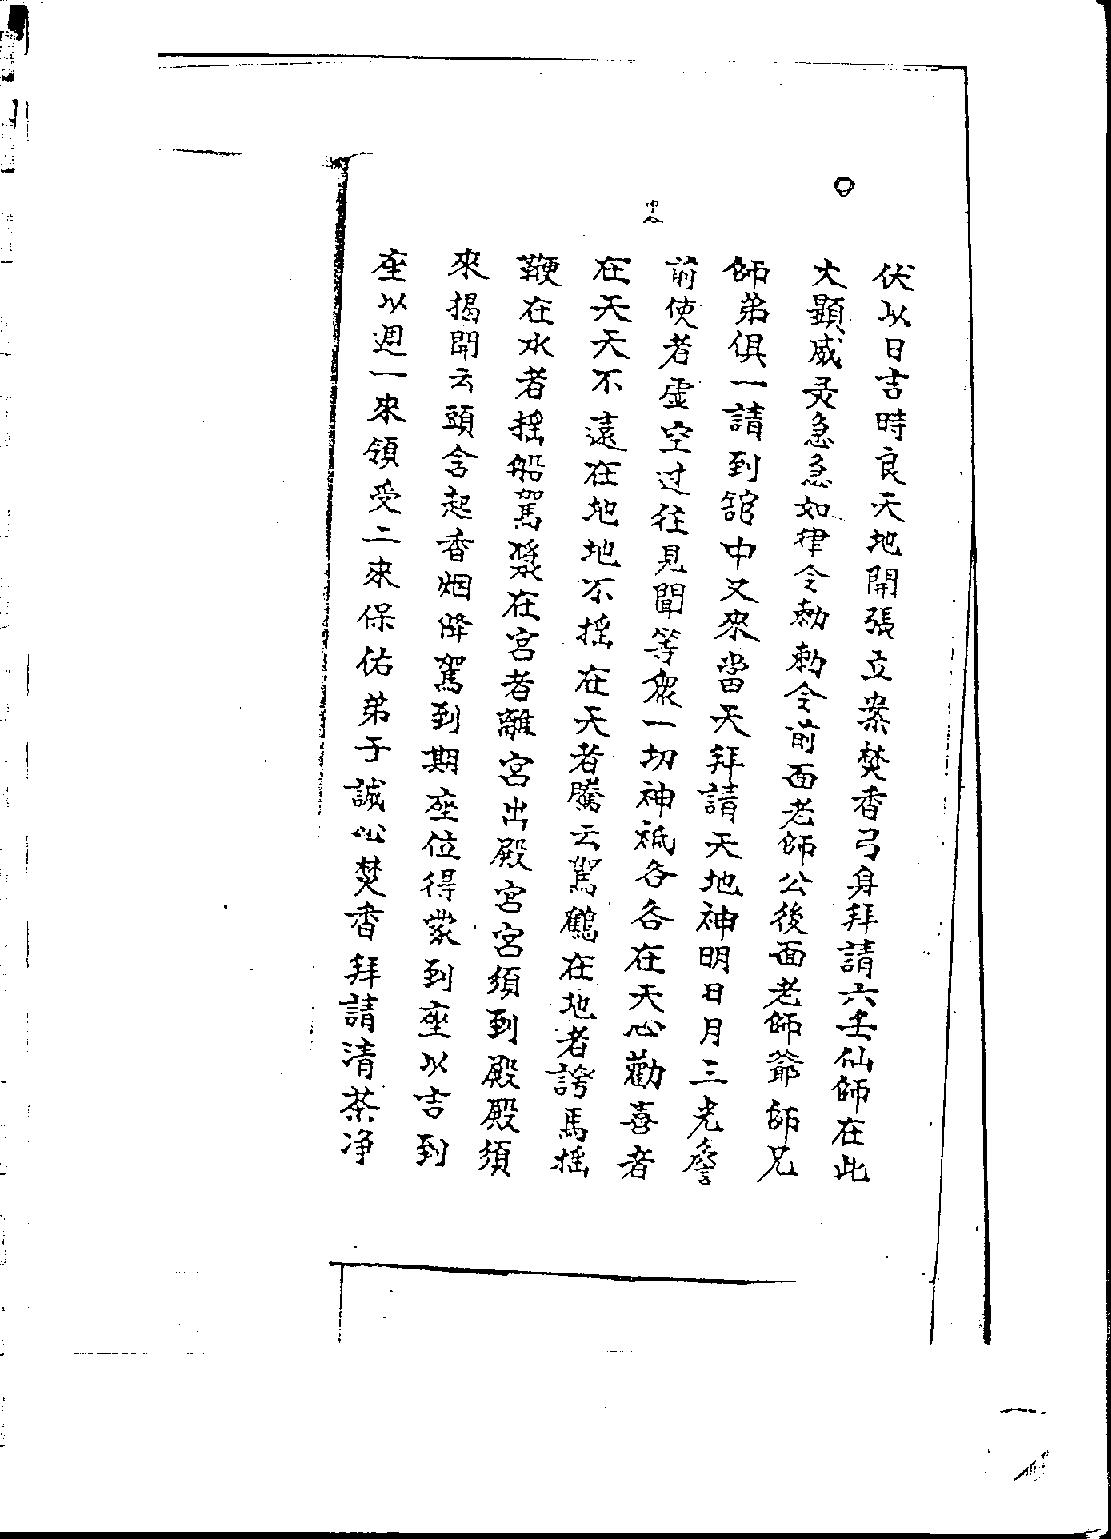 伏以日吉時良天地開張立案焚香弓身拜請六壬仙師在此
大顯威灵急急如律令勅勅令前面老師公後面老師爺師兄
師弟俱一請到舘中又來當天拜請天地神明日月三光詹
前使者虛空过往見聞等衆一切神祇各各在天心勸喜者
在天天不遠在地地不摇在天者騰云駕鶴在地者誇馬摇
鞭在水者摇船駕槳在宮者離宮出殿宮宮須到殿殿須
來揭開云頭含起香烟降駕到期座位得衆到座以吉到
座以迴一來領受二來保佑弟子誠心焚香拜請清茶净